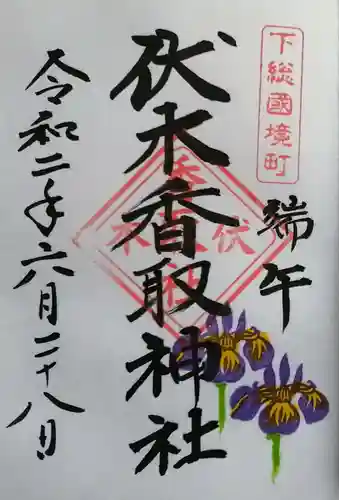 下総國境町
端午
伏木香取神社
令和二年六月二十八日